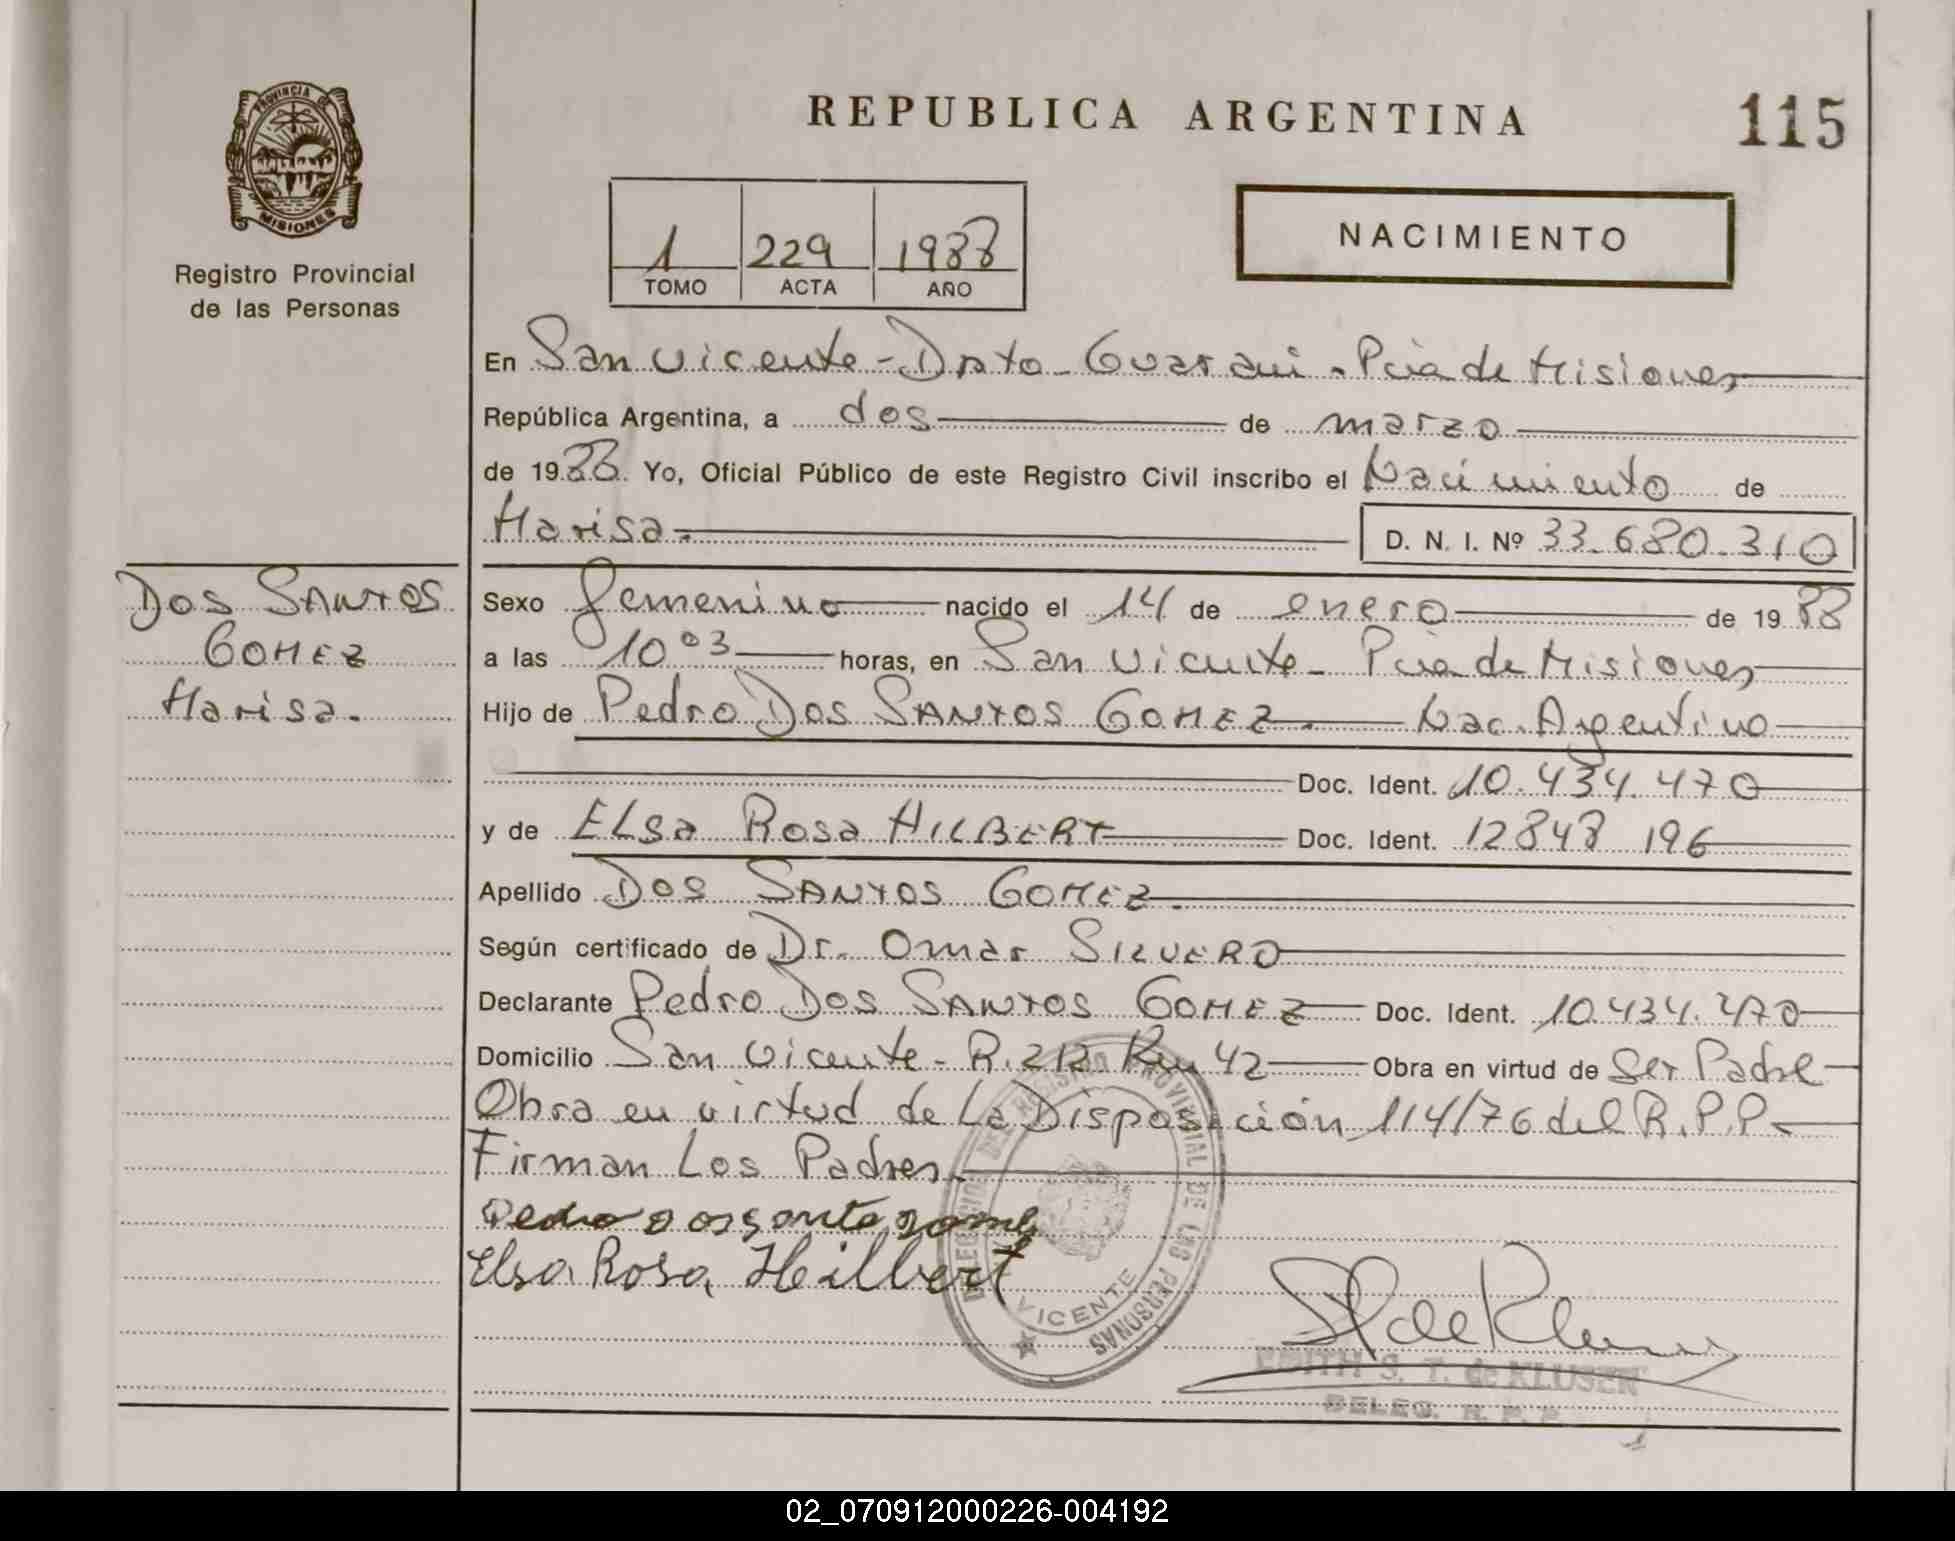 PROVINCIA DE
MISIONES
Registro Provincial
de las Personas
REPUBLICA ARGENTINA
115
1 229 1988
TOMO ACTA AÑO
NACIMIENTO
En San Vicente - Dpto - Guarani - Pcia de Misiones
República Argentina, a dos de marzo
de 1988 Yo, Oficial Público de este Registro Civil inscribo el Nacimiento de
Marisa.
D. N. I. Nº 33.680.310
DOS SANTOS
GOMEZ
Marisa.
Sexo femenino nacido el 14 de enero de 1988
a las 10 03 horas, en San Vicente - Pcia de Misiones
Hijo de Pedro DOS SANTOS GOMEZ. Nac. Argentino
Doc. Ident. 10.434.470
y de ELsa Rosa HILBERT Doc. Ident. 12848 196
Apellido DOS SANTOS GOMEZ.
Según certificado de Dr. Omar SILVERO
Declarante Pedro DOS SANTOS GOMEZ Doc. Ident. 10.434.470
Domicilio San Vicente - R. 212 Km 42 Obra en virtud de Ser Padre
Obra en virtud de La Disposición 114/76 del R.P.P.
Firman Los Padres.
Pedro dos santo gome
Elsa Rosa Heilbert
DELEGACION DEL REGISTRO PROVINCIAL DE LAS PERSONAS
VICENTE
EDITH S. T. de KLUSEN
DELEG. R. P. P.
02_070912000226-004192